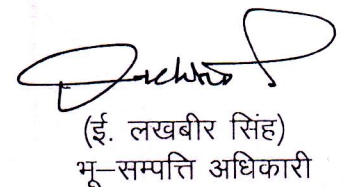 (ई. लखबीर सिंह)
भू–सम्पत्ति अधिकारी